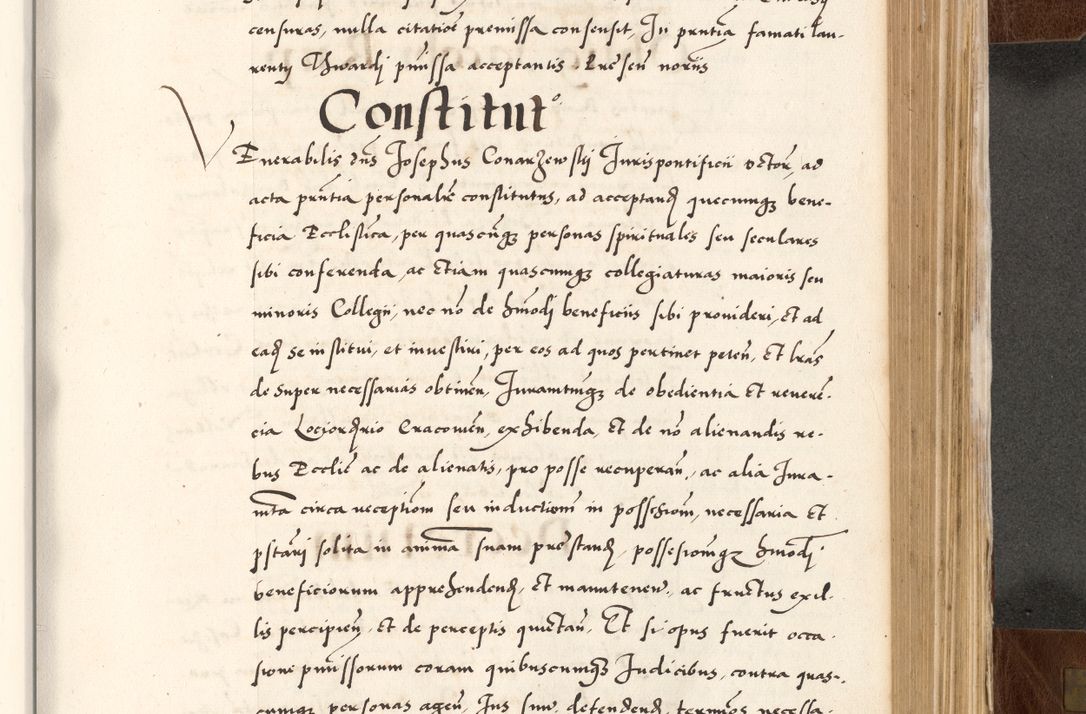 censuras, nulla citatioē premissa consensit, In prntiā famati Lau-
rentij Thwardj pmissa acceptantis. Presen̄ noriis
Constituto
Venerabilis dns Josephus Conarzewskj Jurispontificii Dctor, ad
acta prntia personalr constitutus, ad acceptand quecumq bene-
ficia Ecclistica, per quascūq personas spirituales seu seculares
sibi conferenda, ac etiam quascumq collegiaturas maioris seu
minoris Collegii, nec nō de hmōdj beneficiis sibi provideri, et ad
eadq se institui, et investiri, per eos ad quos pertinet peten̄, Et lrās
de super necessarias obtinen̄, Juramtūq de obedientia Et reverē-
cia Lociordrio Cracovien̄, exhibenda, Et de nō alienandis re-
bus Ecclie ac de alienatis, pro posse recuperan̄, ac alia Jura-
mta circa receptiom seu inductiom in possesiom, necessaria Et
pstari solita in animā suam prestand, possesiomq hmōdj
beneficiorum apprehendend, Et manuteneñ, ac fructus ex il-
lis percipien̄, Et de perceptis quietan̄, Et si opus fuerit occa-
sione pmissorum coram quibuscumq Judicibus, contra quas-
cumq personas agen̄, Jus suū, defendend, terminos necessa-